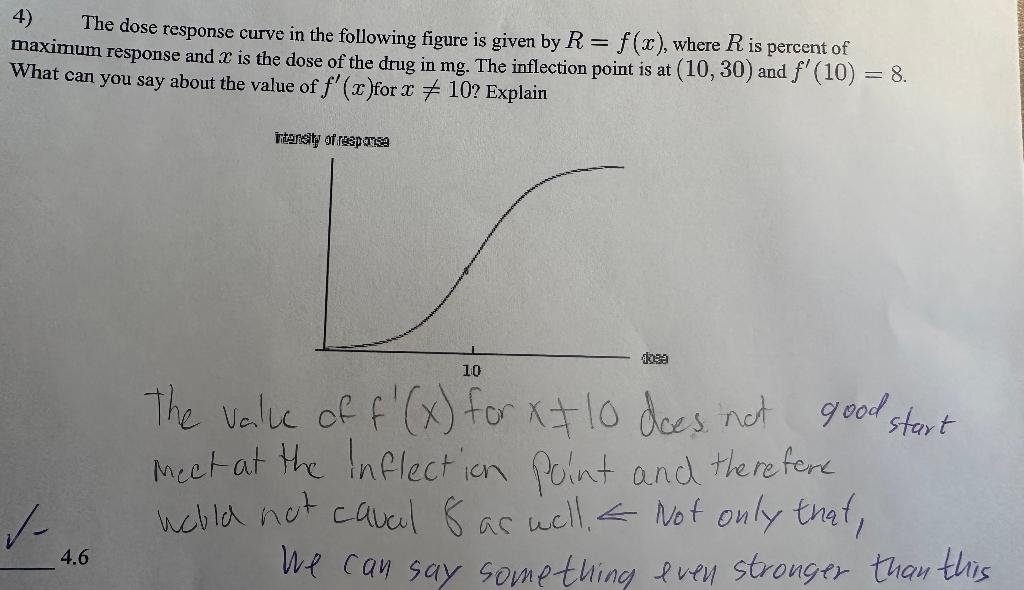 4) The dose response curve in the following figure is given by R = f(x), where R is percent of
maximum response and x is the dose of the drug in mg. The inflection point is at (10, 30) and f'(10) = 8.
What can you say about the value of f'(x)for x ≠ 10? Explain
intensity of response
dose
10
The value of f'(x) for x≠10 does not good start
meet at the inflection point and therefore
would not equal 8 as well. ← Not only that,
✓-
4.6
We can say something even stronger than this